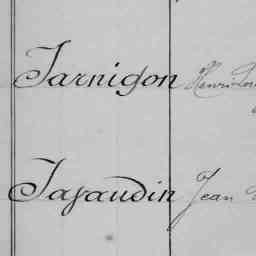 Tarnigon Henri
Tasaudin Jean